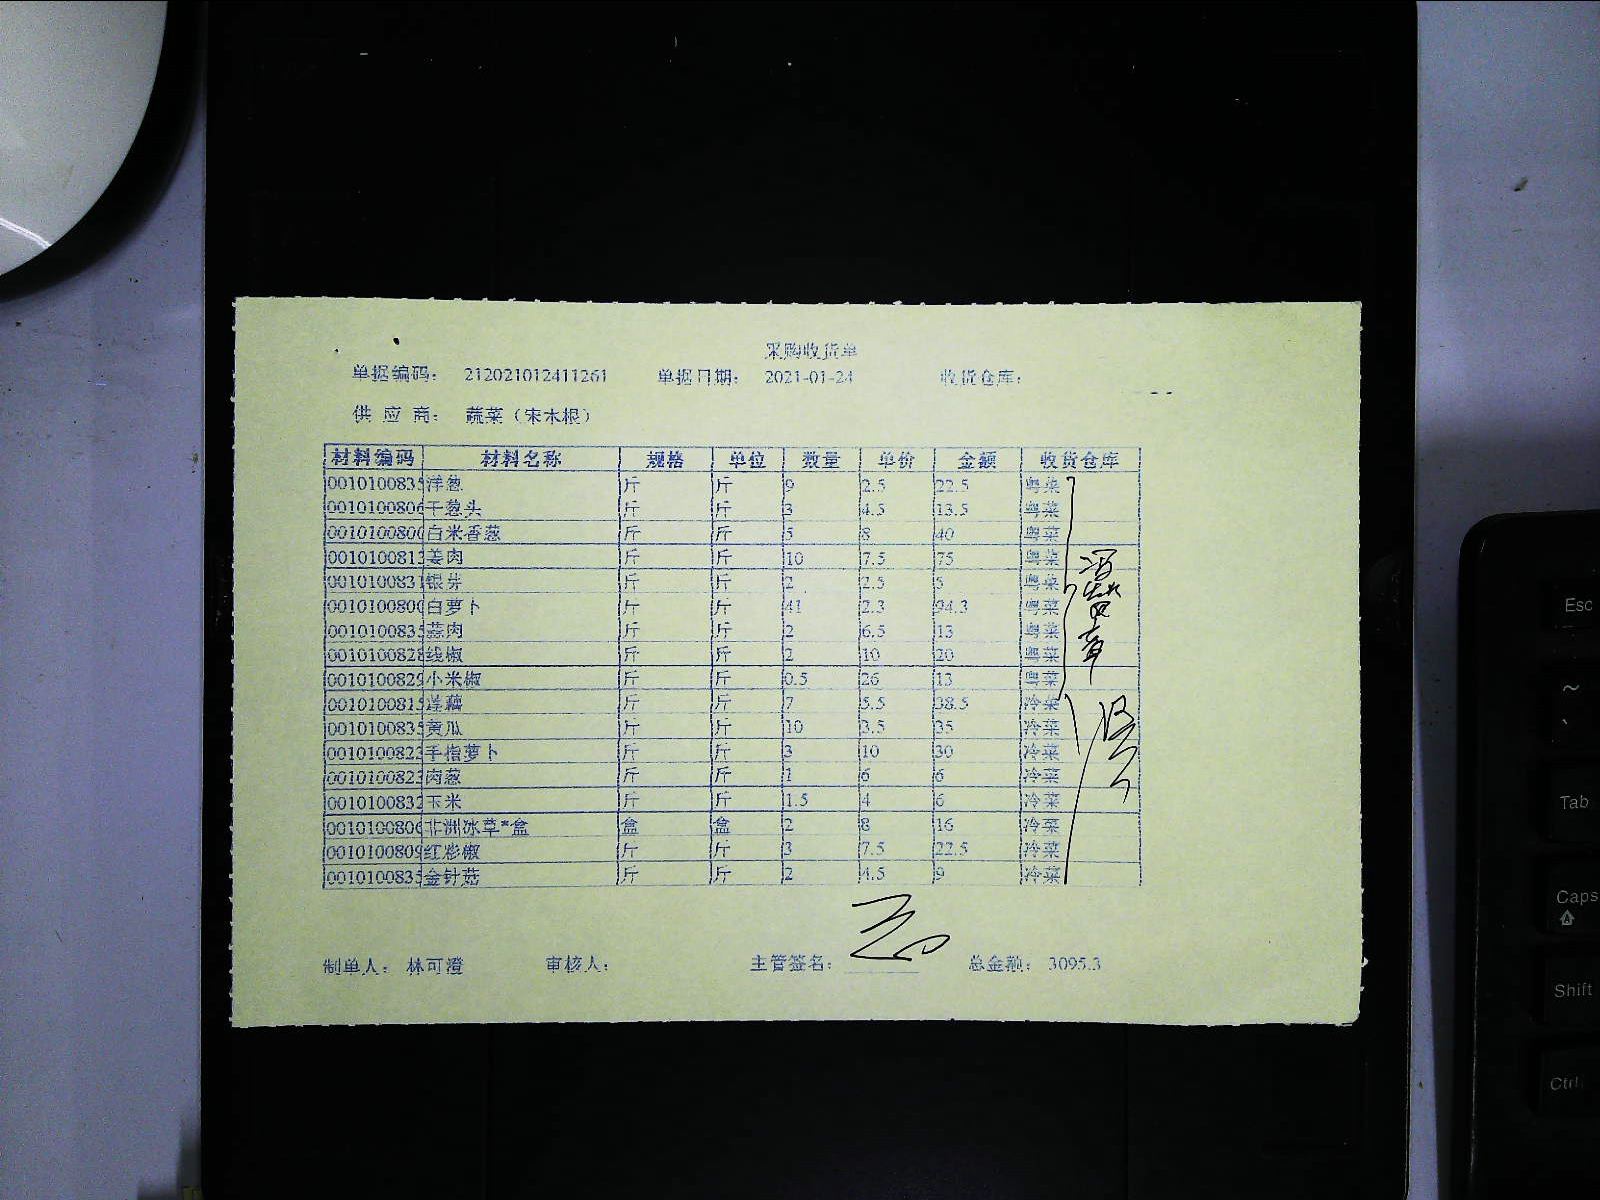 采购收货单
单据编码： 212021012411261 单据日期： 2021-01-24 收货仓库：
供 应 商： 蔬菜（宋木根）
材料编码 材料名称 规格 单位 数量 单价 金额 收货仓库
0010100835 洋葱 斤 斤 9 2.5 22.5 粤菜
0010100806 干葱头 斤 斤 3 4.5 13.5 粤菜
0010100800 白米香葱 斤 斤 5 8 40 粤菜
0010100813 姜肉 斤 斤 10 7.5 75 粤菜
0010100831 银芽 斤 斤 2 2.5 5 粤菜
0010100800 白萝卜 斤 斤 41 2.3 94.3 粤菜
0010100835 蒜肉 斤 斤 2 6.5 13 粤菜
0010100828 线椒 斤 斤 2 10 20 粤菜
0010100829 小米椒 斤 斤 0.5 26 13 粤菜
0010100815 莲藕 斤 斤 7 5.5 38.5 冷菜
0010100835 黄瓜 斤 斤 10 3.5 35 冷菜
0010100823 手指萝卜 斤 斤 3 10 30 冷菜
0010100823 肉葱 斤 斤 1 6 6 冷菜
0010100832 玉米 斤 斤 1.5 4 6 冷菜
0010100806 非洲冰草*盒 盒 盒 2 8 16 冷菜
0010100809 红彩椒 斤 斤 3 7.5 22.5 冷菜
0010100835 金针菇 斤 斤 2 4.5 9 冷菜
制单人： 林可澄 审核人： 主管签名： 总金额： 3095.3
Esc
~
Tab
Caps
Shift
Ctrl